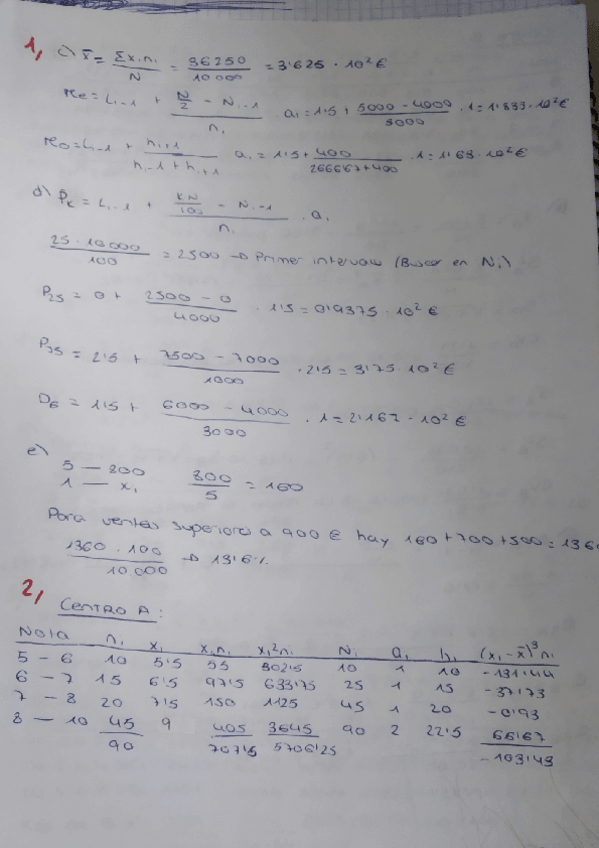 1, c) x̄ = Σxᵢnᵢ / N = 36250 / 10000 = 3'625 · 10² €
Me = Lᵢ-1 + (N/2 - Nᵢ-1) / nᵢ aᵢ = 1'5 + (5000 - 4000) / 3000 · 1 = 1'833 · 10² €
Mo = Lᵢ-1 + hᵢ+1 / (hᵢ-1 + hᵢ+1) aᵢ = 1'5 + 400 / (2666'67 + 400) · 1 = 1'63 · 10² €
d) Pₖ = Lᵢ-1 + (KN/100 - Nᵢ-1) / nᵢ · aᵢ
25 · 10000 / 100 = 2500 → Primer intervalo (Buscar en Nᵢ)
P25 = 0 + (2500 - 0) / 4000 · 1'5 = 0'9375 · 10² €
P75 = 2'5 + (7500 - 7000) / 1000 · 2'5 = 3'75 · 10² €
D6 = 1'5 + (6000 - 4000) / 3000 · 1 = 2'167 · 10² €
e)
5 — 800 800 / 5 = 160
1 — xᵢ
Para ventas superior a 900 € hay 160 + 700 + 500 = 1360
1360 · 100 / 10000 → 13'6%
2, CENTRO A:
Nota nᵢ xᵢ xᵢnᵢ xᵢ²nᵢ Nᵢ aᵢ hᵢ (xᵢ - x̄)³nᵢ
5 - 6 10 5'5 55 302'5 10 1 10 -131'44
6 - 7 15 6'5 97'5 633'75 25 1 15 -37'73
7 - 8 20 7'5 150 1125 45 1 20 -0'93
8 — 10 45 9 405 3645 90 2 22'5 66'67
90 707'5 5706'25 -103'43